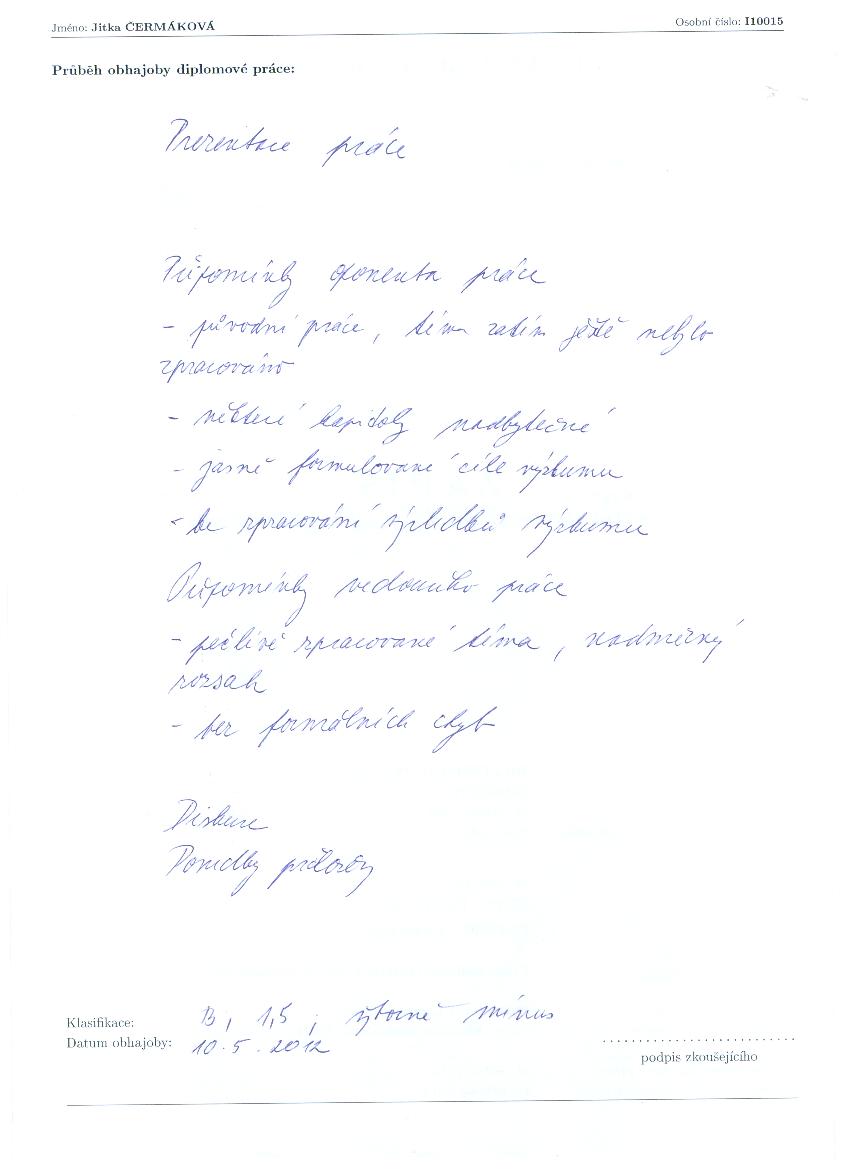 Jméno: Jitka ČERMÁKOVÁ
Osobní číslo: I10015
Průběh obhajoby diplomové práce:
Prezentace práce
Připomínky oponenta práce
- původní práce, téma zatím ještě nebylo
zpracováno
- některé kapitoly nadbytečné
- jasně formulované cíle výzkumu
- ke zpracování výsledků výzkumu
Připomínky vedoucího práce
- pečlivě zpracované téma, nadměrný
rozsah
- bez formálních chyb
Diskuse
Klasifikace: B, 1,5, výborně mínus
Datum obhajoby: 10.5.2012
podpis zkoušejícího